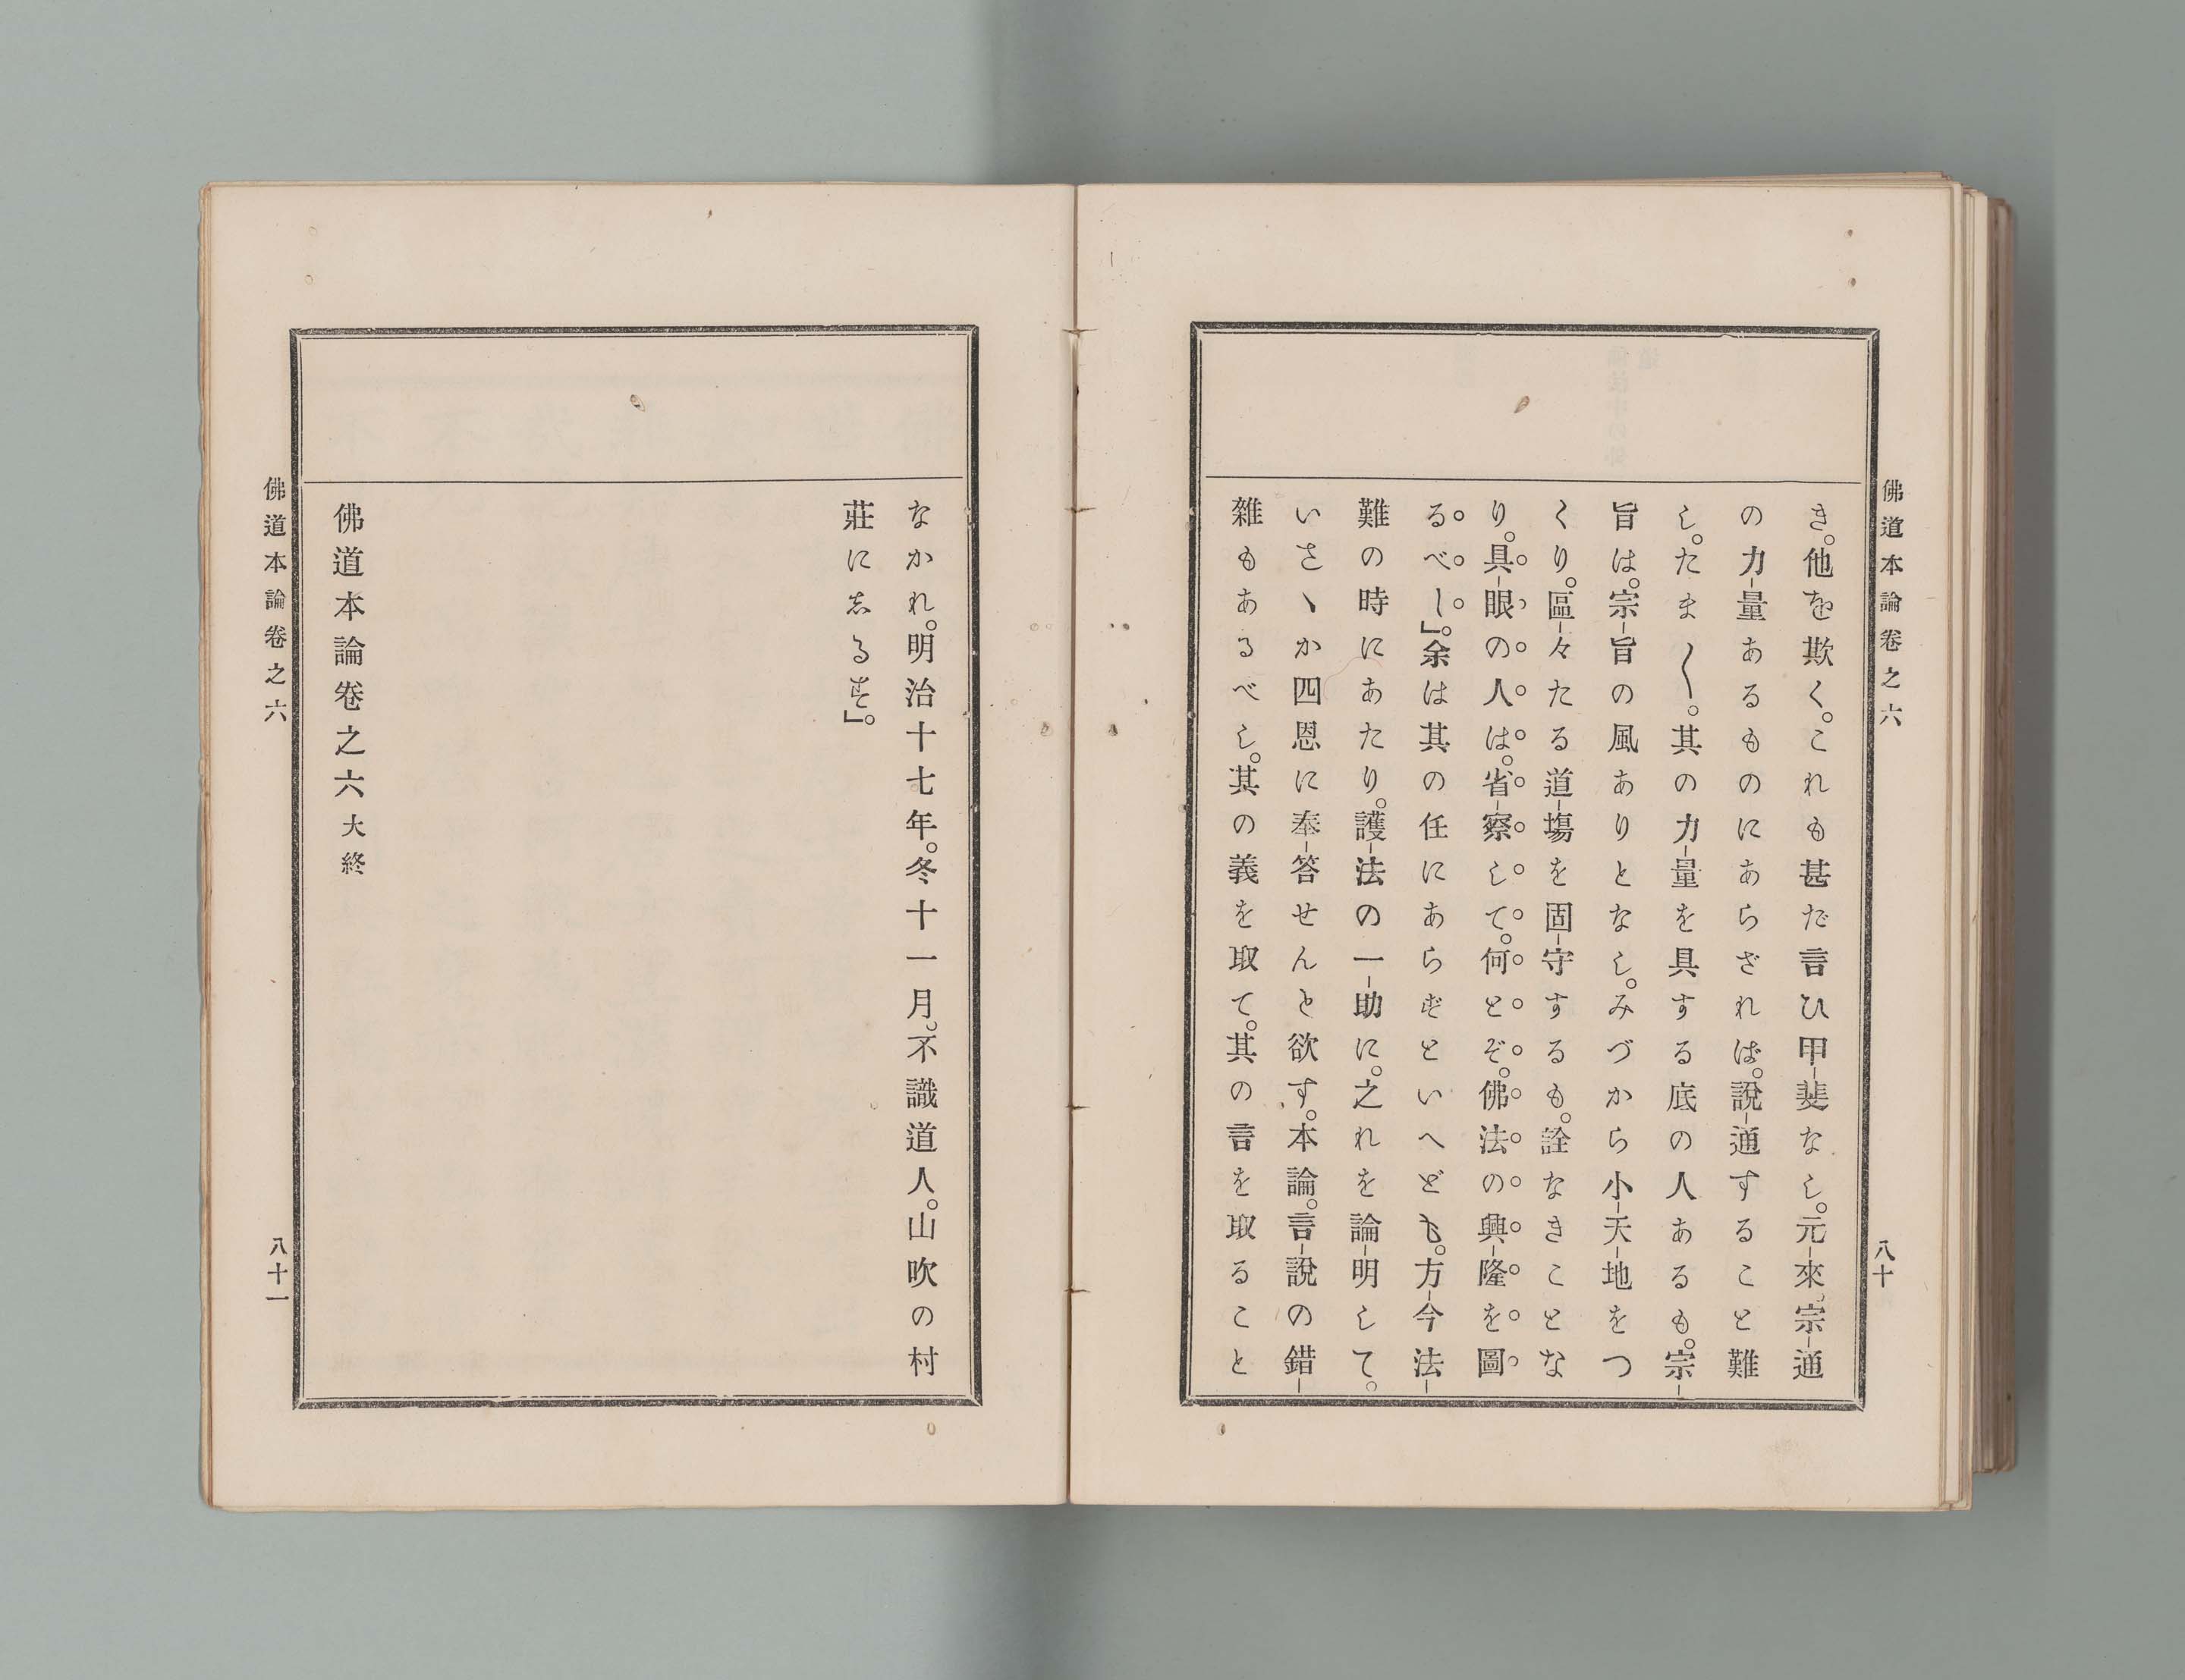 佛道本論卷之六
八十
き。他を欺く。これも甚だ言ひ甲斐なし。元來。宗通
の力量あるものにあらざれば。說通すること難
し。たま〳〵。其の力量を具する底の人あるも。宗
旨は。宗旨の風ありとなし。みづから小天地をつ
くり。區々たる道塲を固守するも。詮なきことな
り。具眼の人は。省察して。何とぞ。佛法の興隆を圖
るべし」。余は其の任にあらずといへども。方今法
難の時にあたり。護法の一助に。之れを論明して。
いさゝか四恩に奉答せんと欲す。本論。言說の錯
雜もあるべし。其の義を取て。其の言を取ること
なかれ。明治十七年。冬十一月。不識道人。山吹の村
莊にしるす」。
佛道本論卷之六大終
佛道本論卷之六
八十一